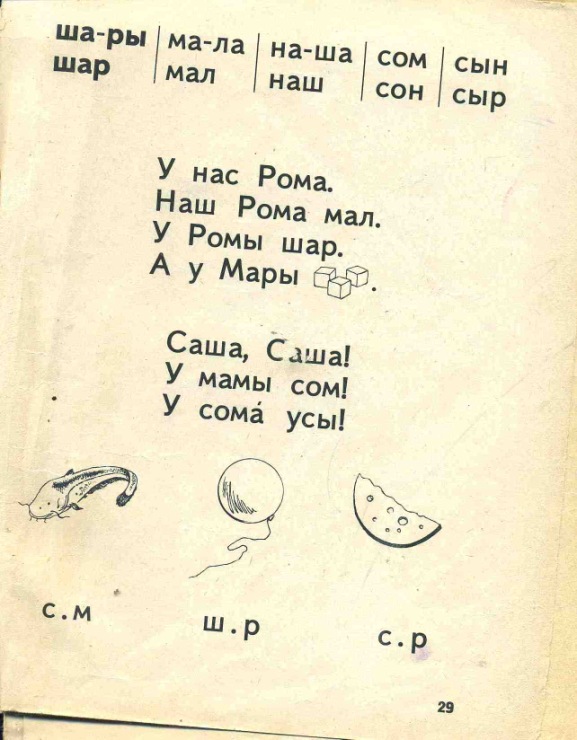 ша-ры ма-ла на-ша сом сын
шар мал наш сон сыр
У нас Рома.
Наш Рома мал.
У Ромы шар.
А у Мары .
Саша, Саша!
У мамы сом!
У сома́ усы!
с.м ш.р с.р
29